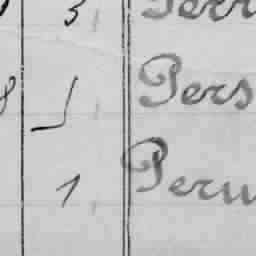 3 Perr
8 1 Pers
1 Peru